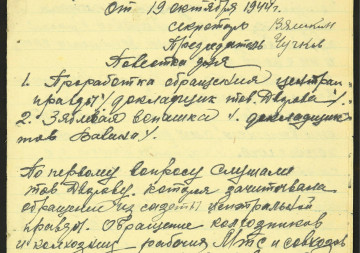 От 19 октября 1944 г.
секретарь Вяткин
Председатель
Повестка дня
1. Проработка обращения централ
правды / докладчик тов. Двулова /.
2. Зяблевая вспашка /. докладчик
тов
По первому вопросу слушали
тов Двулову. которая зачитывала
обращение из газеты центральной
правды. Обращение колхозников
и колхозниц рабочих МТС и совхозов